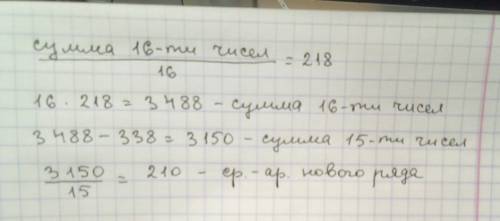 сумма 16-ти чисел / 16 = 218
16 · 218 = 3488 - сумма 16-ти чисел
3488 - 338 = 3150 - сумма 15-ти чисел
3150 / 15 = 210 - ср.-ар. нового ряда